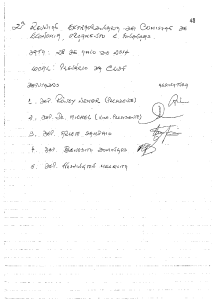 48
2ª REUNIÃO EXTRAORDINÁRIA DA COMISSÃO DE
ECONOMIA, ORÇAMENTO E FINANÇAS
DATA: 28 DE MAIO DE 2014
LOCAL: PLENÁRIO DA CLDF
DEPUTADOS ASSINATURA
1. DEP. RONEY NEMER (PRESIDENTE)
2. DEP. DR. MICHEL (VICE-PRESIDENTE)
3. DEP.
4. DEP. BENEDITO DOMINGOS
5. DEP. WELLINGTON